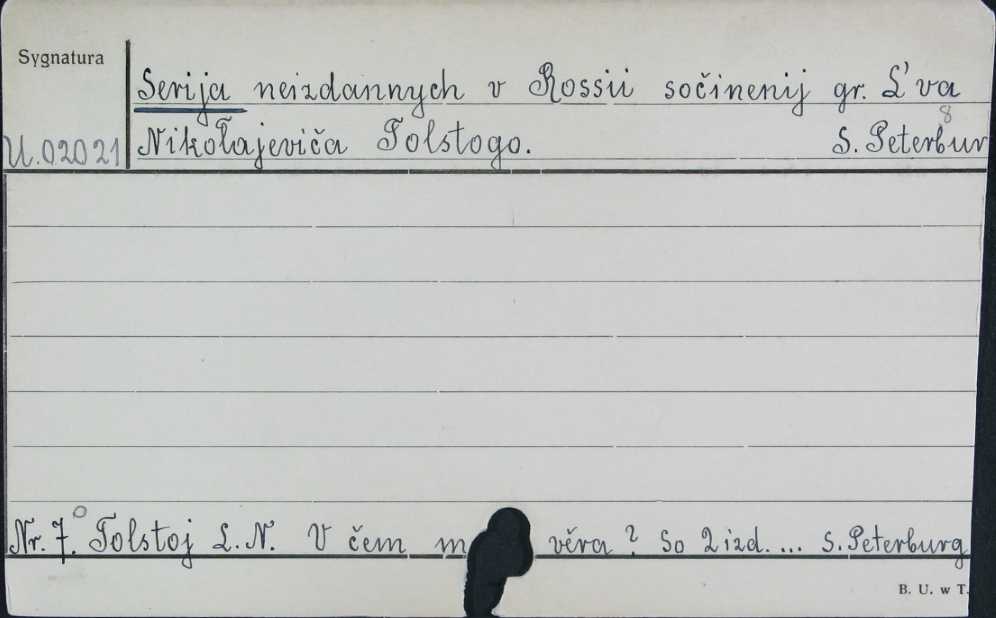 Sygnatura
Serija neizdannych v Rossii sočinenij gr. L'va
8
U.02021 Nikołajeviča Tolstogo. S. Peterbur
Nr. 7. Tolstoj L. N. V čem věra? So 2 izd. ... S. Peterburg
B. U. w T.